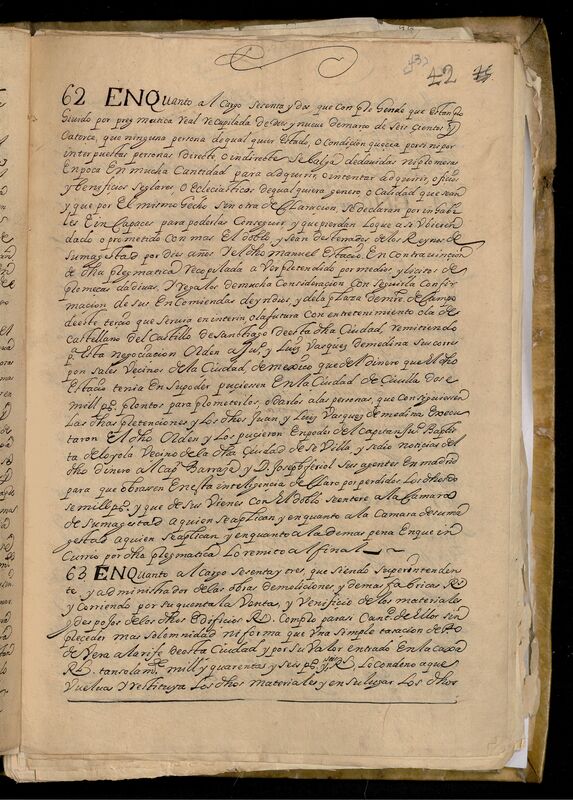 43
42
62 ENQuanto al Cargo sesenta y dos que con pe Gonde que estando
Siuido por pregmatica Real recupilada de Dies y nueue de março de seis cientos y
Catorce, que ninguna persona de qual quier estado, o Condiçion que sea por si ni por
inter puestas personas directe o indirecte se Balga de dauidas ni promesas
En poca En mucha Cantidad para adquirir, o intentar ad quirir, ofiçios
y benefiçios seglares, o Ecleciasticos de qual quiera genero o Calidad que sean
y que por El mismo hecho sin otra declaraçion, se declaran por inhabi
les E in Capaces para poderlas Conseguir y que pierdan Lo que asi Vbieren
dado o prometido con mas El doblo y sean desterrados de los Reynos de
su magestad por dies años y el dho manuel Estaçio En contrauençion
de dha plegmatica recopilada a Ver pretendido por medios ylicitos de
plomecas dadiuas, y regalos de mucha Consideraçion Con seguir la Confir
maçion de sus En Comiendas de yndios y de la plaza de mre. de Campo
de este terçio que seruia en interin o la futura Con entretenimiento o la de
Castellano del Castillo de santhiago de esta dha Ciudad, remitiendo
pa. Esta negoçiaçion Orden a Jun. y Luis Vasques de medina sus cores
pon sales Vecinos de la Ciudad de mexico que del Dinero que El dho
Estaçio tenia En su poder pusiesen En la Ciudad de Ceuilla dose
mill ps. prontos para prometerlos, o darlos a las personas, que Consiguiesen
Las dhas pretenciones y Los dhos Juan y Luis Vasques de medina Execu
taron El dho Orden y Los pusieron En poder del Capitan Jun. Baptis
ta de Loyola Vecino de la dha Ciudad de Seuilla y se dio noticias del
dho dinero al Cap. Barraza y D. Joseph feriol sus agentes En madrid
para que obrasen En esta inteligencia declaro por perdidos Los dhos do
se mill ps. y que de sus Vienes Con El doblo se entere a la Camara
de su magestad a quien se aplican y en quanto a la Camara de su ma
gestad a quien se aplican y en quanto a la demas pena En que in
Currio por dha plegmatica Lo remito al final
63 ENQuanto al Cargo sesenta y tres, que siendo superintenden
te y administrador de las obras demoliciones, y demas fabricas Rs.
y Corriendo por su quenta la Venta, y Venefiçio de los materiales
y despojos de los dhos Edifiçios Rs. Complo para si Cant. de Ellos sin
preceder mas solemnidad ni forma que Vna simple tasaçion de
de Vera alarife de esta Ciudad y por su Valor entrado En la caxa
Rl. tan solamte. mill y quarenta y seis ps. Lo Condeno a que
Vuelua y restituya Los dhos materiales y en su lugar Los dhos